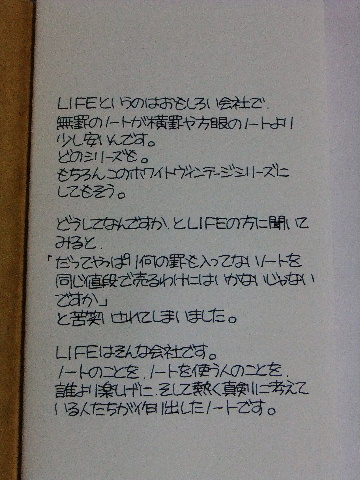 LIFEというのはおもしろい会社で、
無罫のノートが横罫や方眼のノートより
少し安いんです。
どのシリーズも。
もちろんこのホワイトヴィンテージシリーズに
してもそう。
どうしてなんですか、とLIFEの方に聞いて
みると、
「だってやっぱり何の罫も入ってないノートを
同じ値段で売るわけにはいかないじゃない
ですか」
と苦笑いされてしまいました。
LIFEはそんな会社です。
ノートのことを、ノートを使う人のことを、
誰より楽しげに、そして熱く真剣に考えて
いる人たちが作り出したノートです。